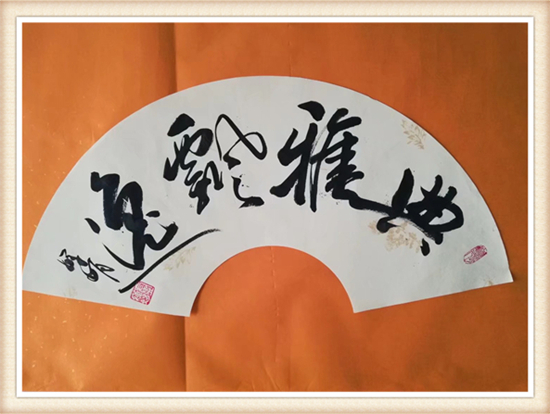 典雅飘逸